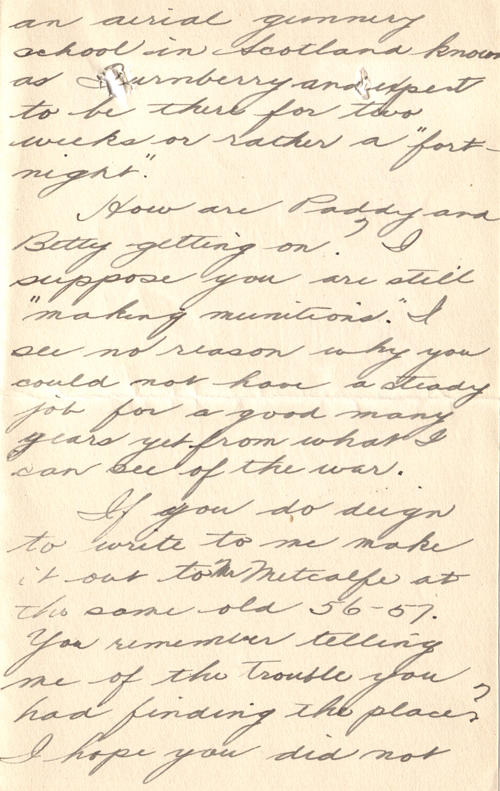 an aerial gunnery
school in Scotland known
as Turnberry and expect
to be there for two
weeks or rather a "fort-
night".
How are Paddy and
Betty getting on? I
suppose you are still
"making munitions." I
see no reason why you
could not have a steady
job for a good many
years yet from what I
can see of the war.
If you do deign
to write to me make
it out to Mr Metcalfe at
the same old 56-57.
You remember telling
me of the trouble you
had finding the place?
I hope you did not